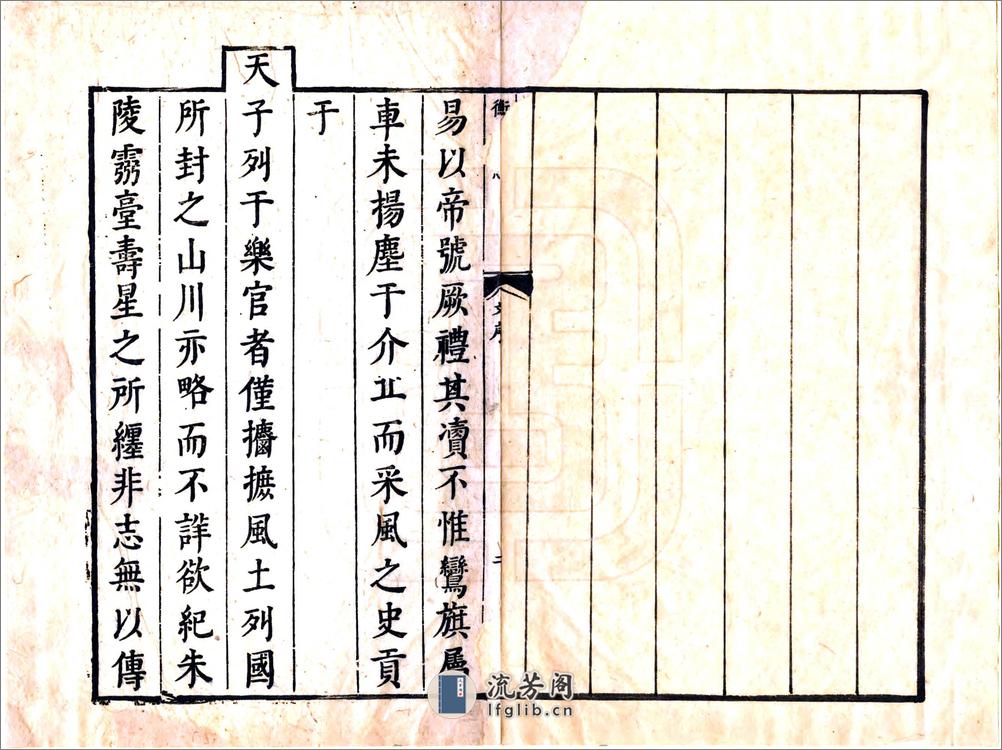 易以帝號厥禮其瀆不惟鸞旗屬
車未揚塵于介丘而采風之史貢
于
天子列于樂官者僅擩摭風土列國
所封之山川亦略而不詳欲紀朱
陵霛臺壽星之所纏非志無以傳
衡
序
三
流芳阁
lfglib.cn